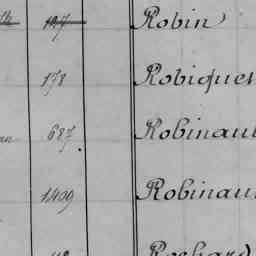 127 Robin
178 Robiques
687. Robinau
1409 Robinau
Rochard